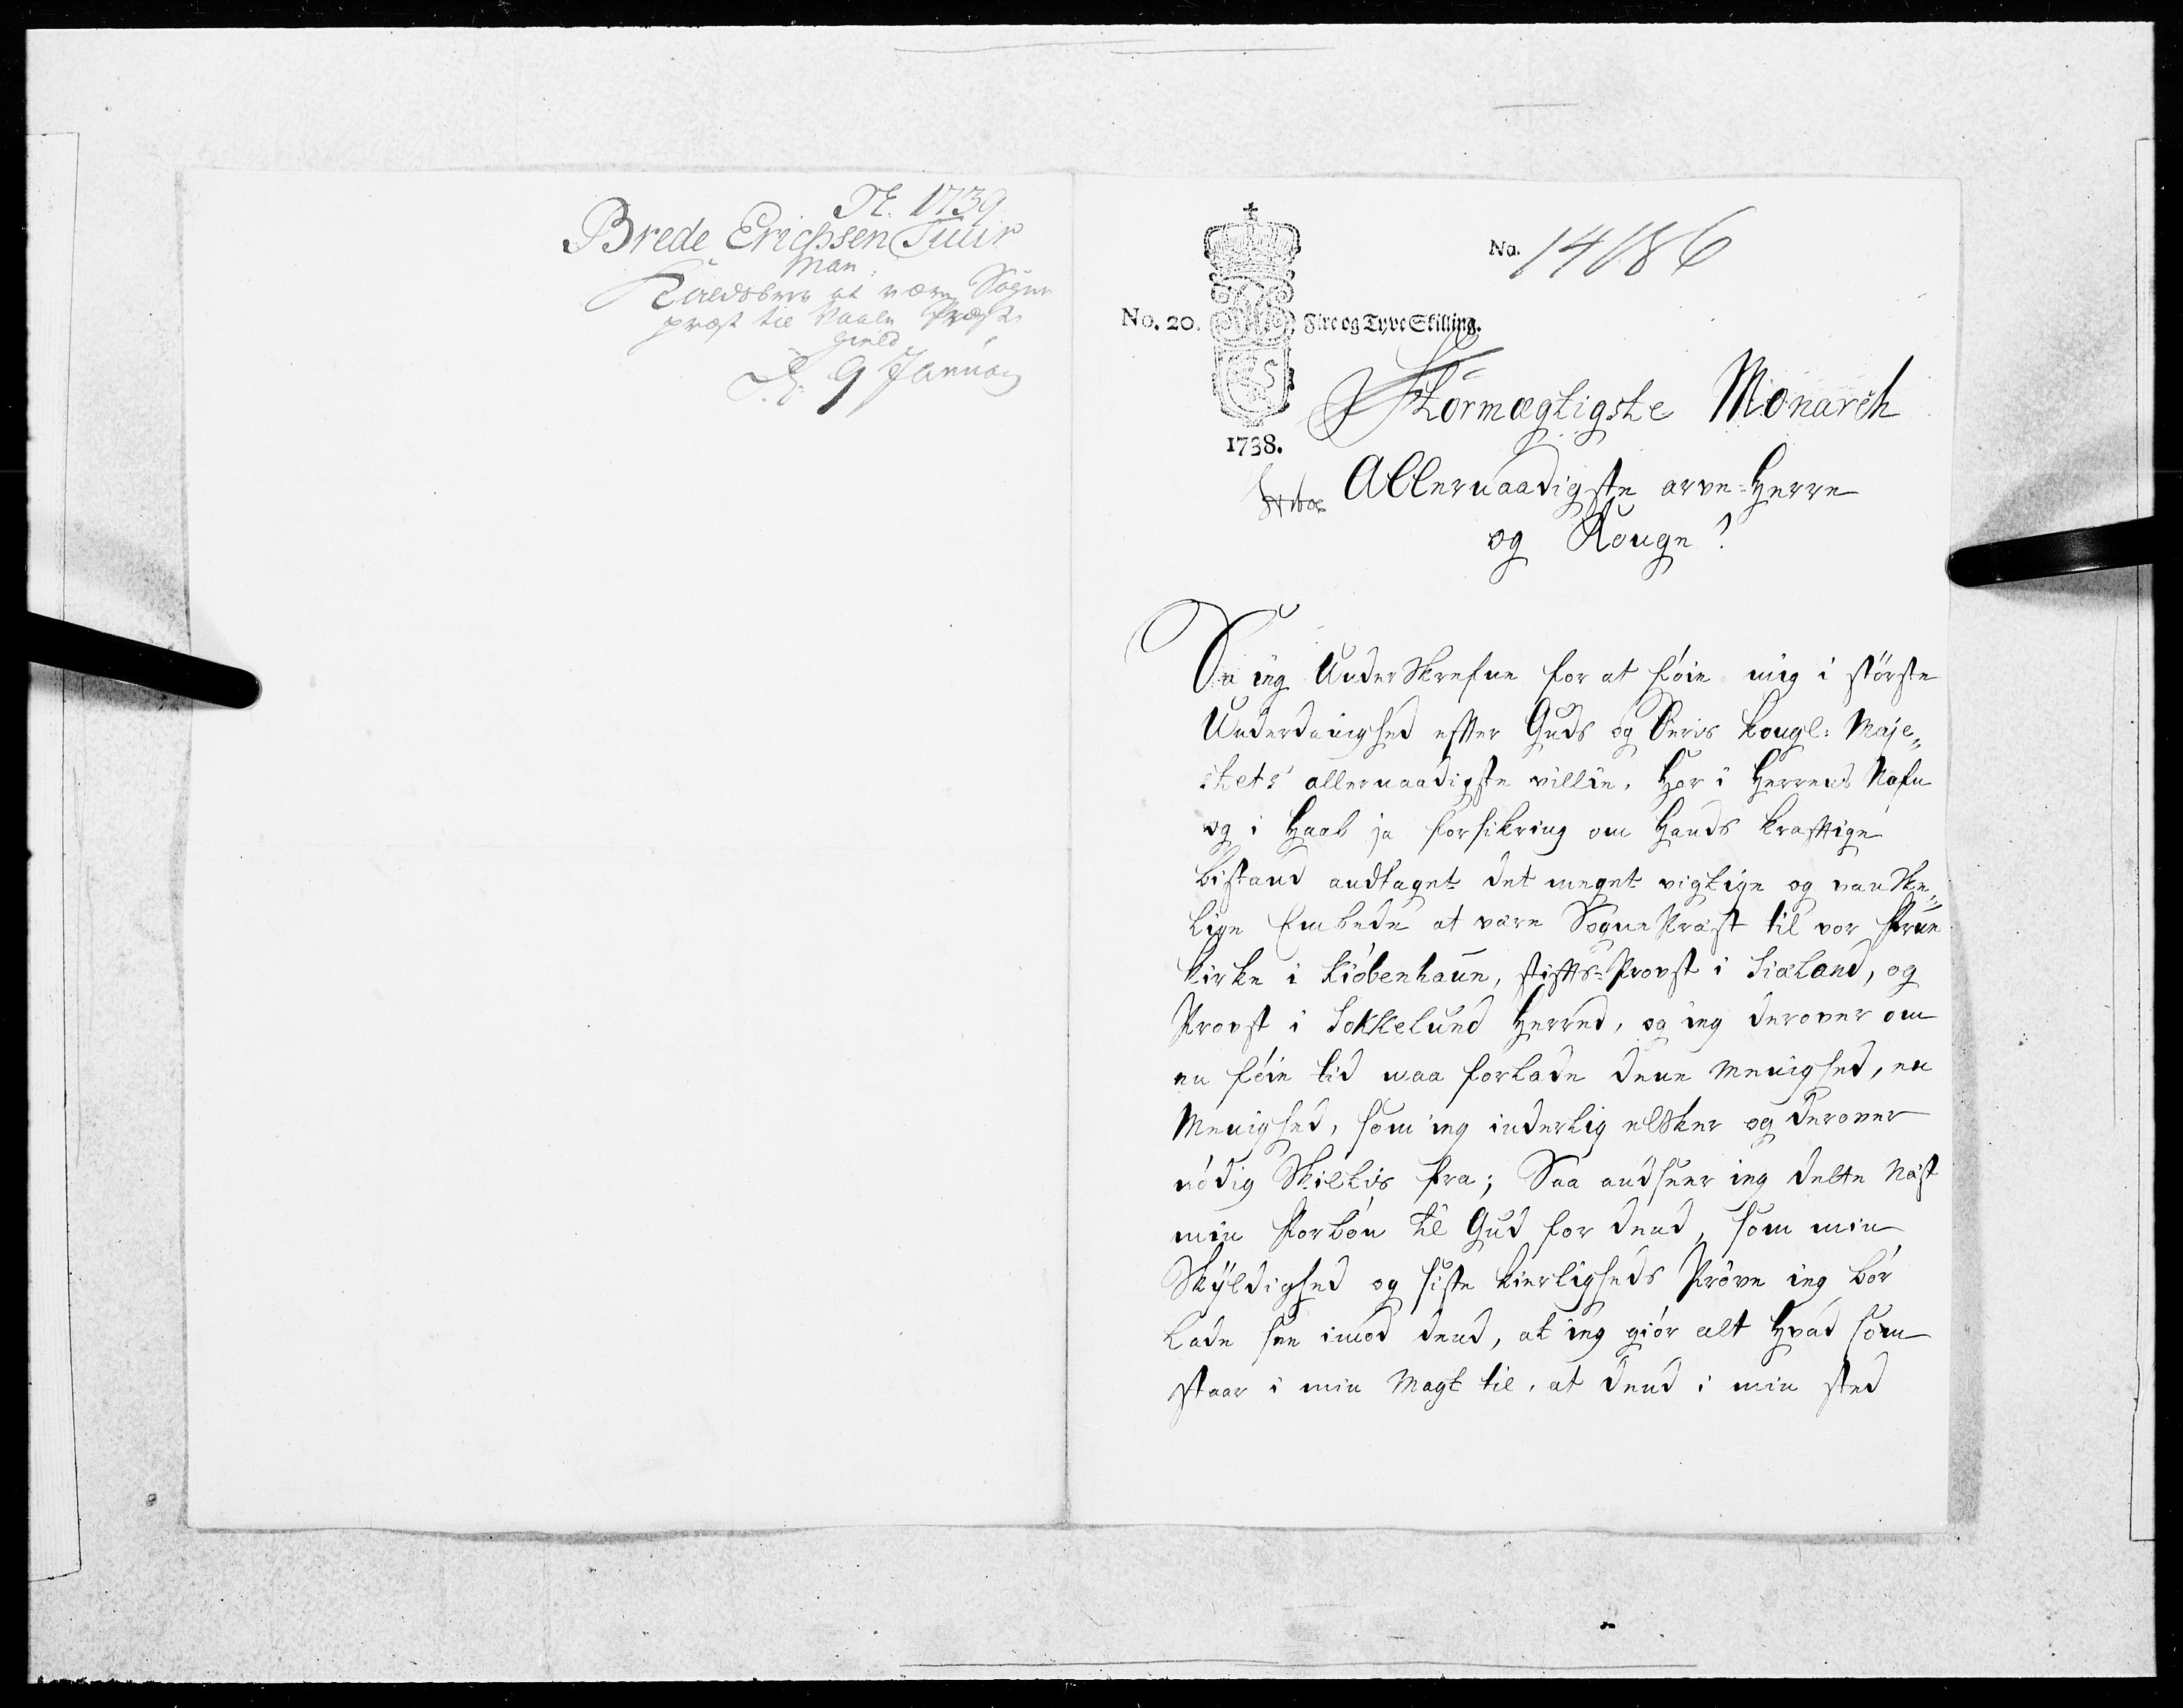 1739
Brede Erichsen Tuur
man
Kaldsbrev at være Sogne
præst til Vaale Præste
gield
9 Januar
No. 14186
No. 20. Fire og Tyve Skilling.
1738.
Stormægtigste Monarch
Allernaadigste arve-Herre
og Konge!
Da ieg Underskrefne for at föie mig i störste
Underdanighed efter Guds og Deris Kongl: Maje„
stets allernaadigste villie, har i Herrens Nafn
og i Haab ja forsikring om Hands kraftige
bistand andtaget det meget vigtige og vanske„
lige Embede at være Sogne Præst til vor Frue
Kirke i Kiöbenhaun, stifts-Provst i Siæland, og
Provst i Sokkelund Herred, og ieg derover om
en föie tid maa forlade denne Menighed, en
Menighed, som ieg inderlig elsker og derover
nödig Skillis fra; Saa andseer ieg dette Næst
min forbön til Gud for dend, som min
Skÿldighed og siste kierligheds Pröve ieg bör
lade see imod dend, at ieg giör alt hvad som
staar i min Magt til, at dend i min sted